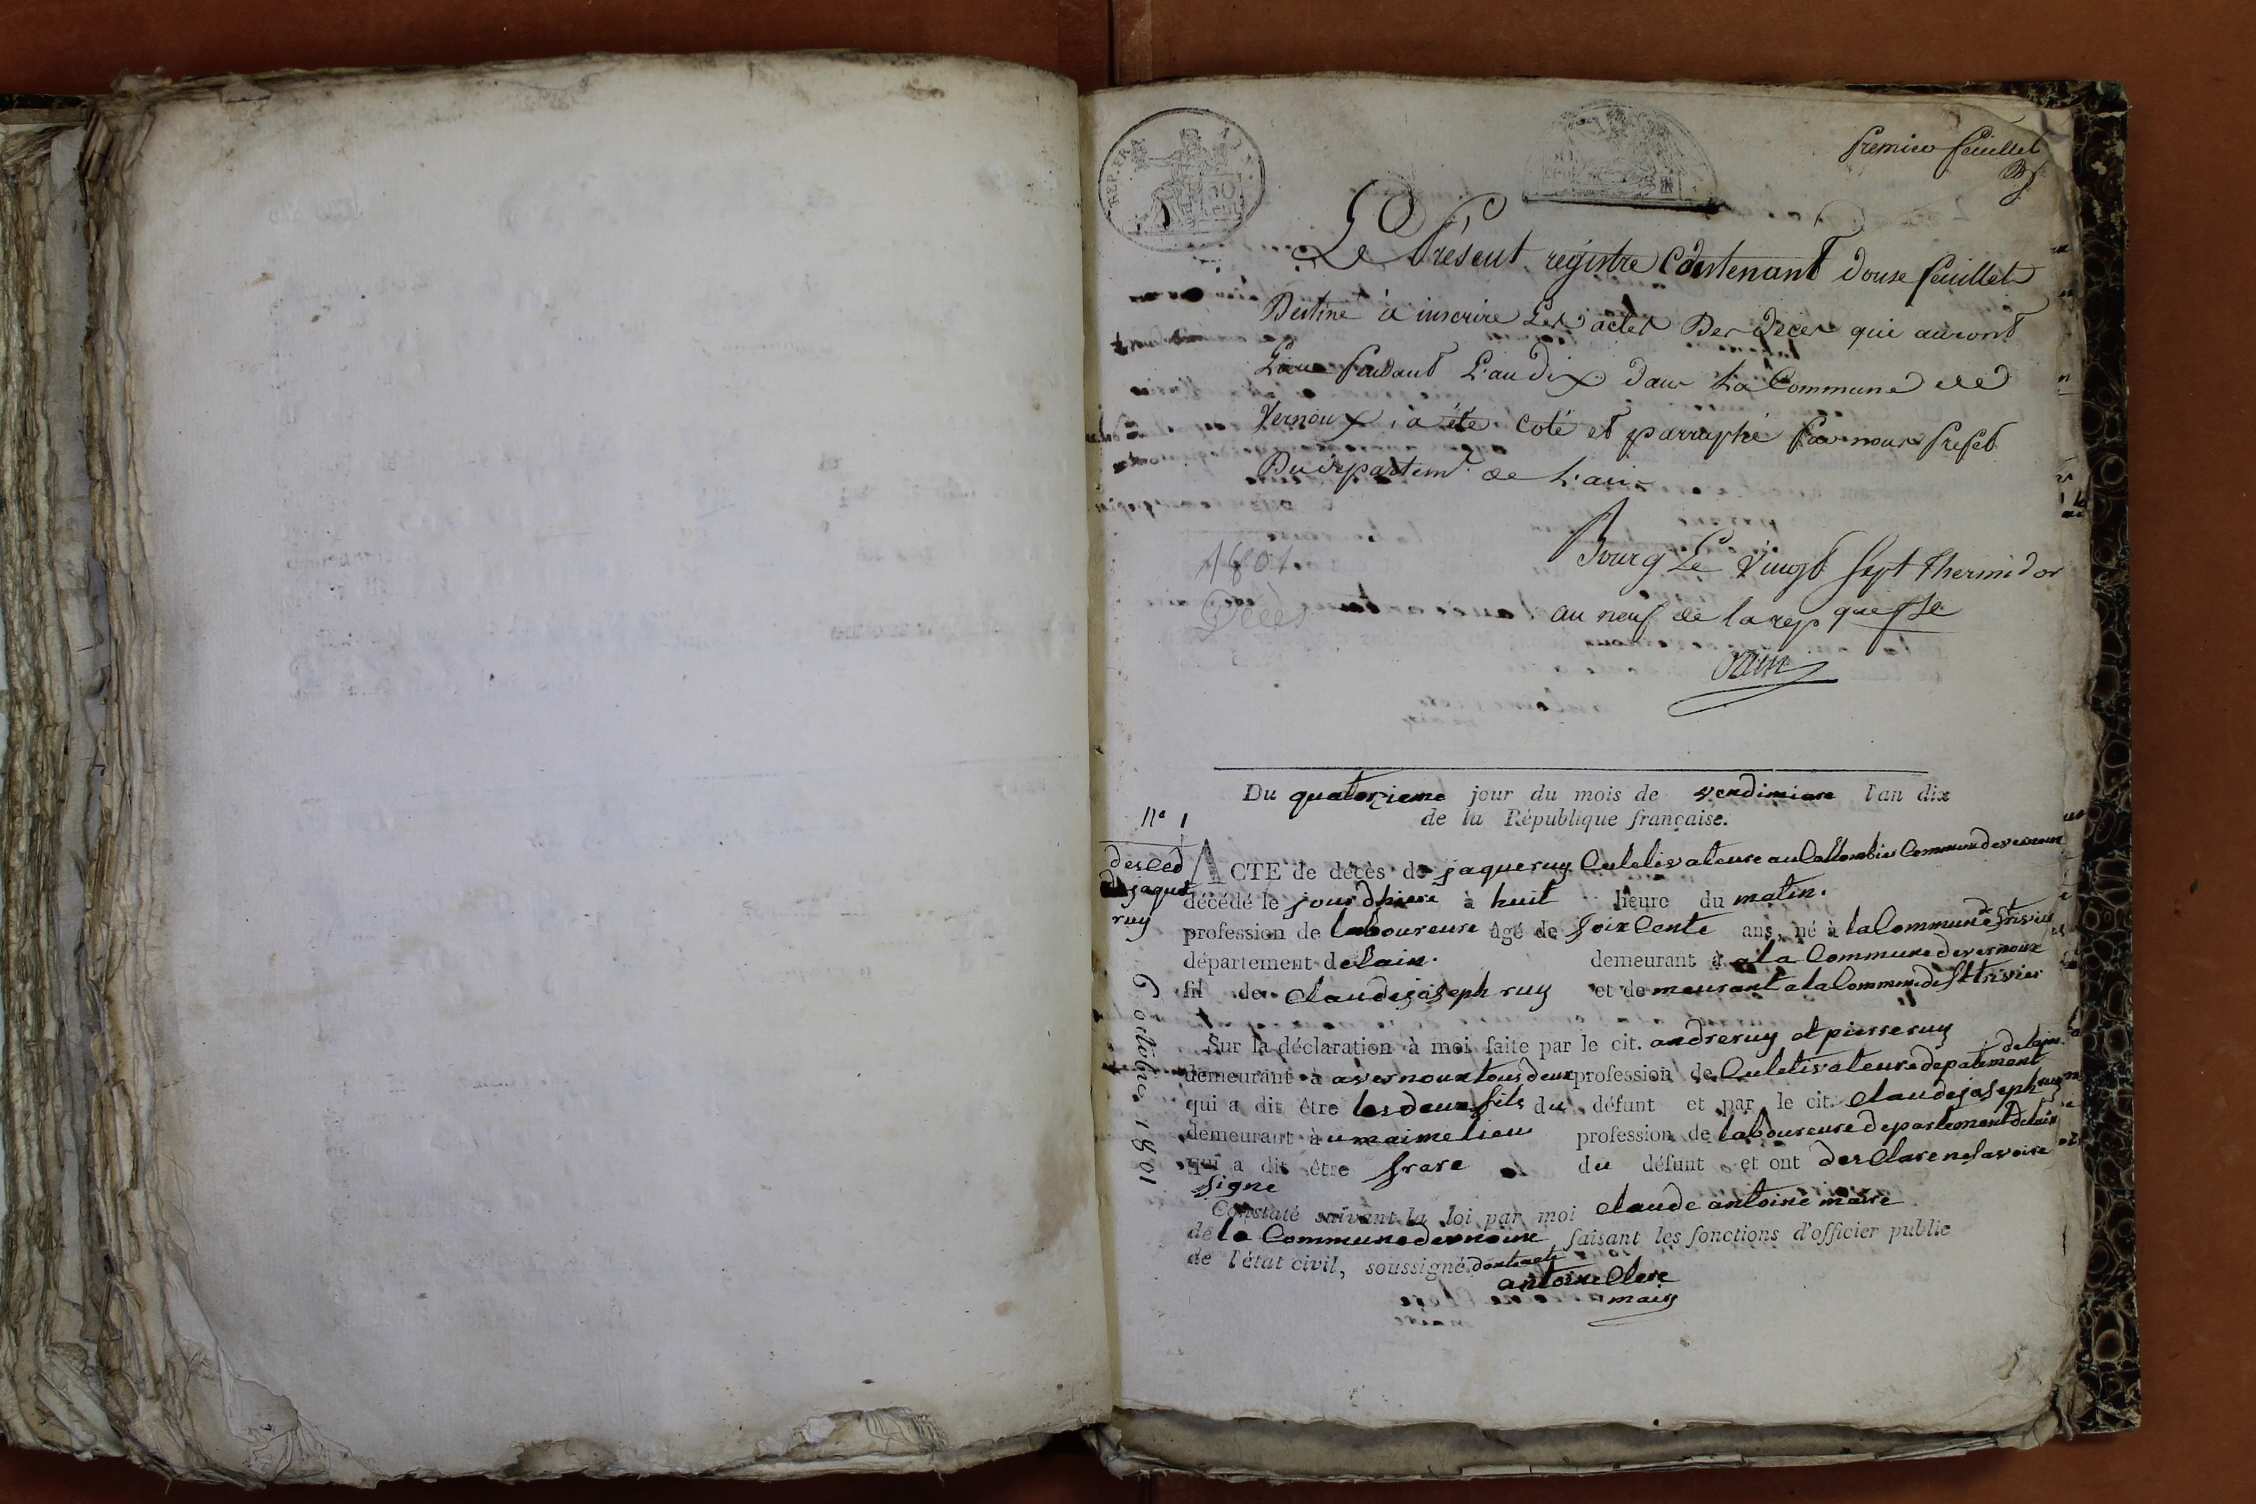 REP. FRA
50
cent
premier feuillet
Le Présent registre Contenant douze feuillets
Destiné à inscrire Les actes Des Décès qui auront
Lieu Pendant L'an dix dans La Commune de
Vernoux, a été coté et parraphé Par nous Prefet
Du departemt. de L'ain
Bourg Le Vingt Sept Thermidor
an neuf de la rep que fse
Ozun
1801
Décès
Du quatorzieme jour du mois de vendimiare l'an dix
de la République française.
No 1
desced
de jaques
ruy
6 octobre 1801
ACTE de décès de jaque ruy Culetivateure au Collombier Commune de vernoux
décédé le jour dhiere à huit heure du matin.
profession de laboureure âgé de soixcente ans, né à la Commune de St trivier
département de lain. demeurant à a la Commune de vernoux
fil de Claude joseph ruy et de meurant a la Commune de St trivier
Sur la déclaration à moi faite par le cit. andre ruy et pierre ruy
demeurant à a vernoux tous deux profession de Culetivateure depatement de lain
qui a dit être les deux fils du défunt et par le cit. Claude joseph ruy
demeurant à u maime lieu profession de laboureure departement de lain
qui a dit être frare du défunt et ont desclare ne savoire
signe
Constaté suivant la loi par moi Claude antoine maire
de la Commune de vernoux faisant les fonctions d'officier public
de l'état civil, soussigné
antoine Clere
maire